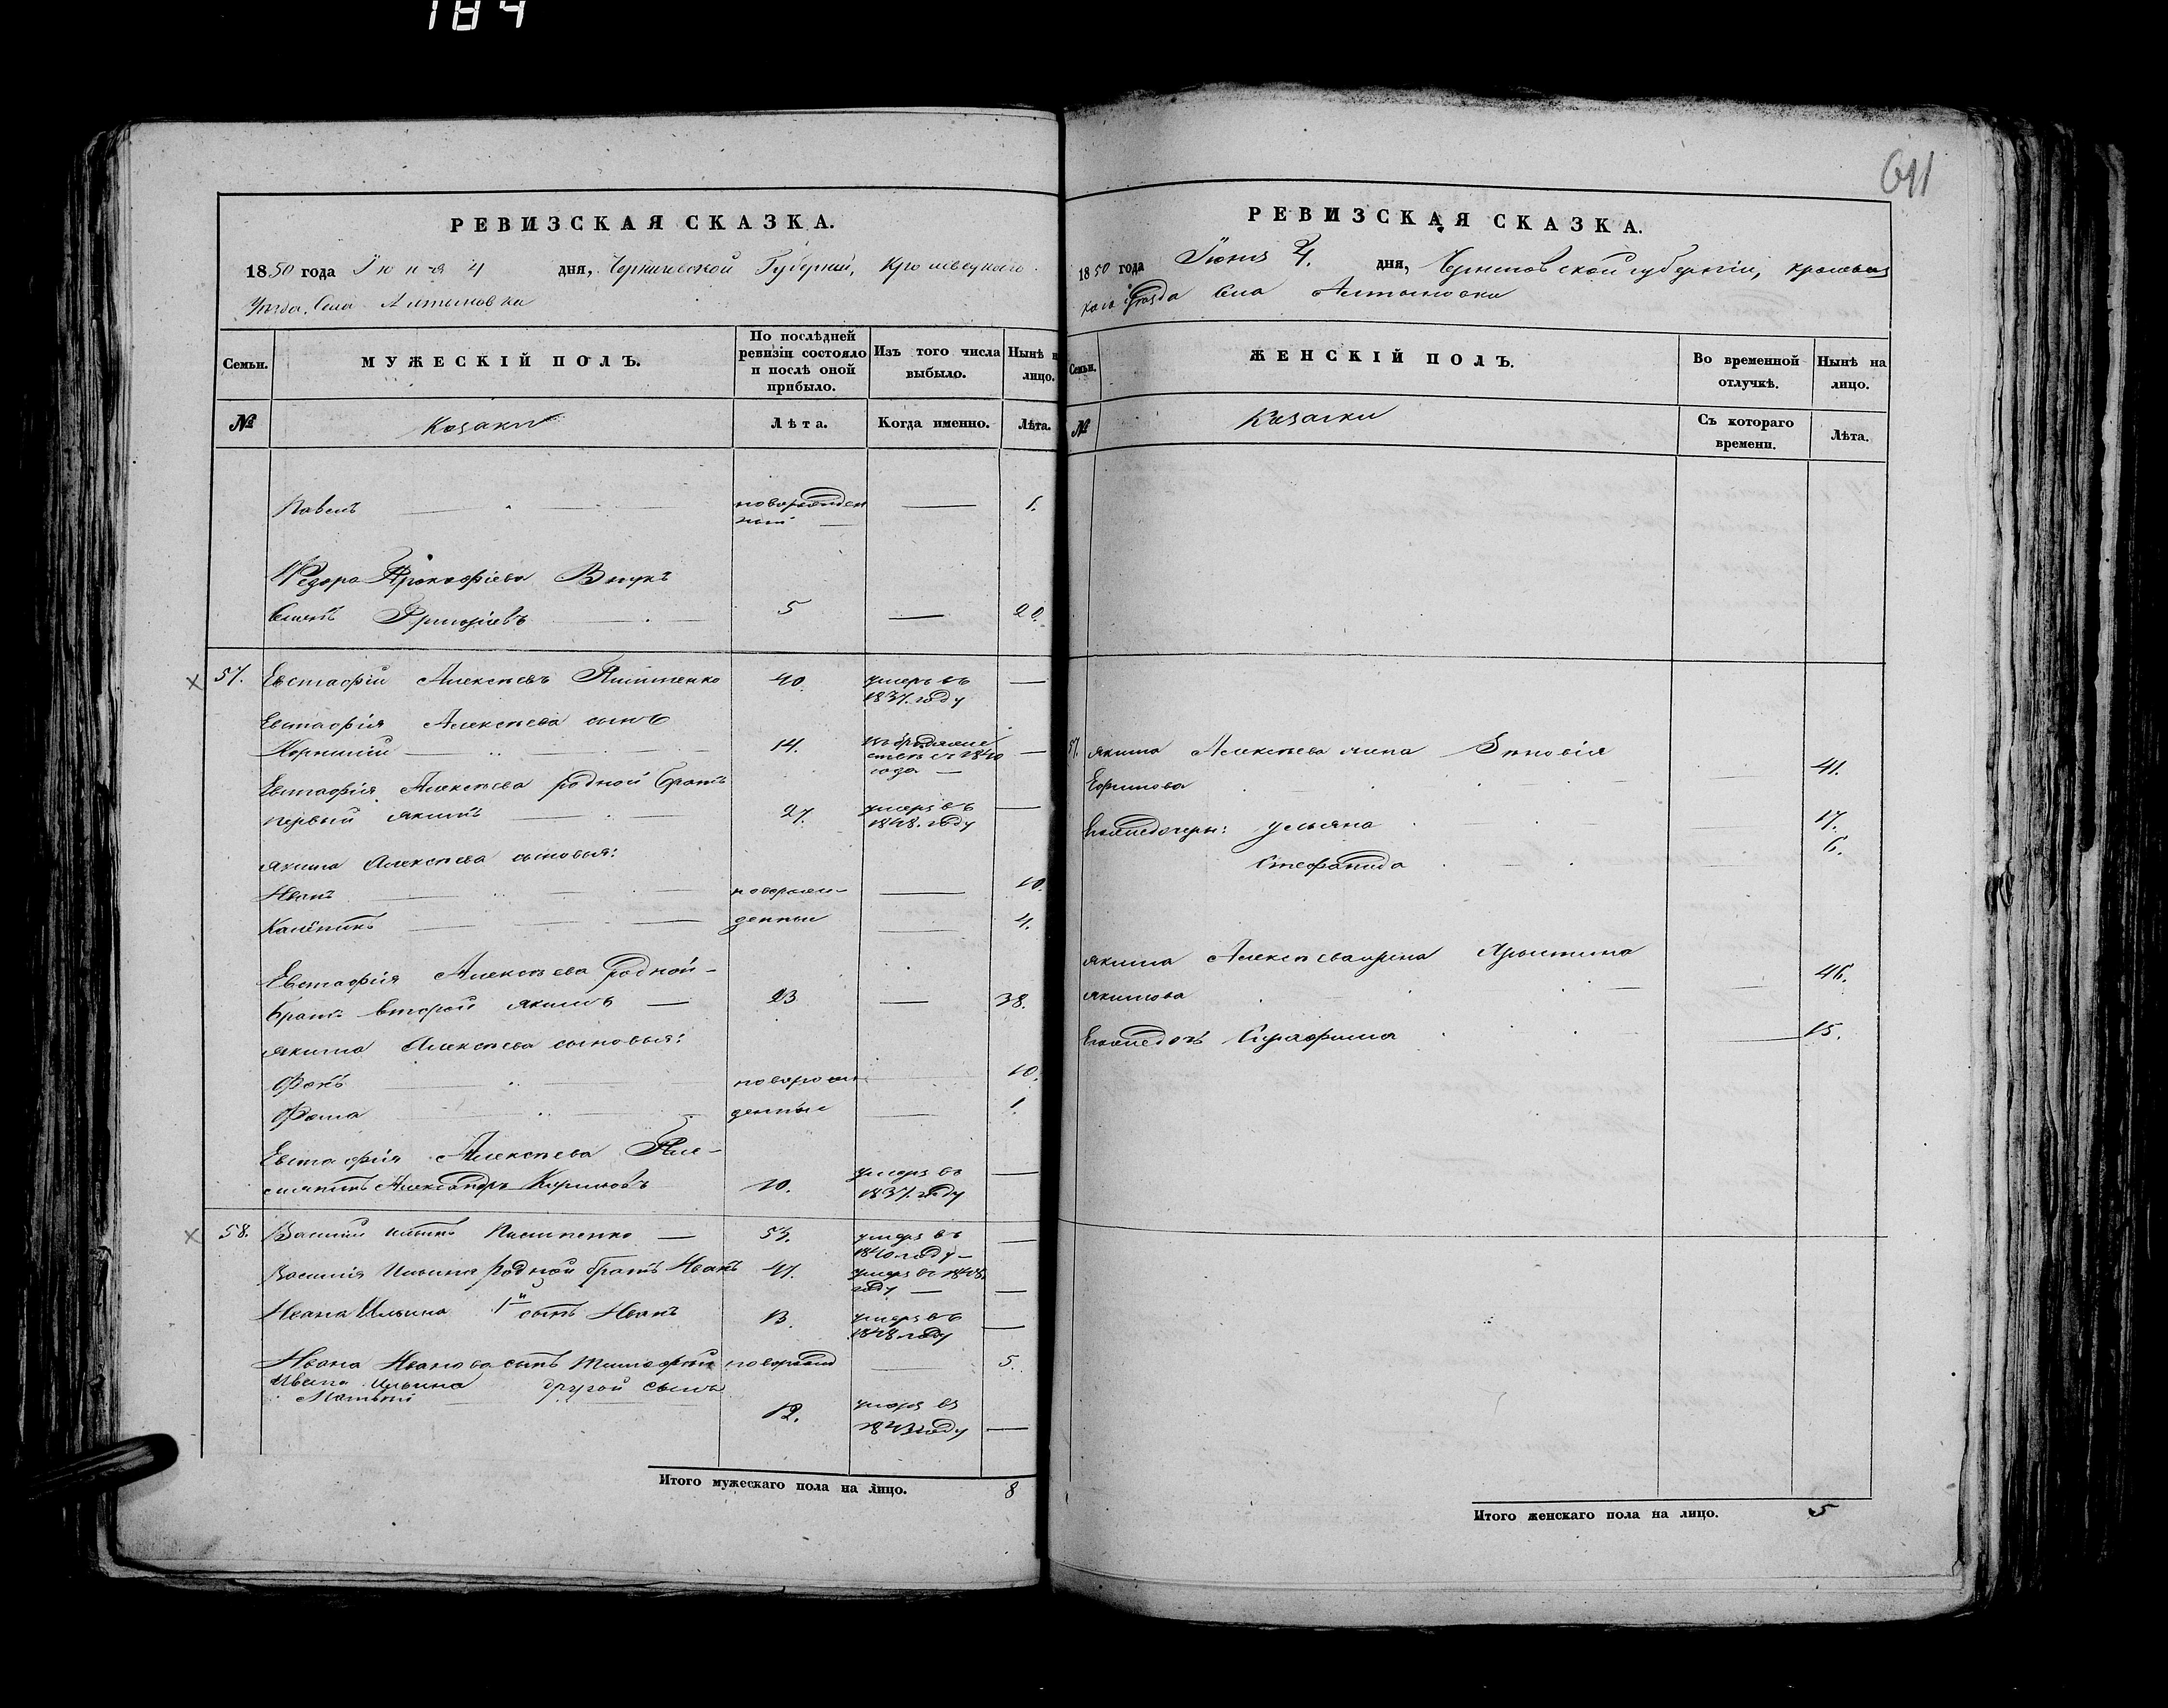 184
641
РЕВИЗСКАЯ СКАЗКА.
1850 года Іюня 4 дня, Черниговской Губерніи, Кролевецкаго
Уѣзда, Села Алтыновки
Семьи.
МУЖЕСКІЙ ПОЛЪ.
По послѣдней ревизіи состояло и послѣ оной прибыло.
Изъ того числа выбыло.
Нынѣ на лицо.
№
Козаки
Лѣта.
Когда именно.
Лѣта.
Павелъ новорожден 1.
ный
Федора Прокофіева Внукъ
Семенъ Григоріевъ 5 20.
57. Евстафій Алексѣевъ Пилипенко 40. умеръ въ
1837. году
Евстафія Алексѣева сынъ
Корнилій 14. въ бродяже
ствѣ съ 1840
года
Евстафія Алексѣева родной братъ
первый Якимъ 27. умеръ въ
1848. году
Якима Алексѣева сыновья:
Иванъ новорож- 10.
денные 4.
Евстафія Алексѣева родной-
братъ второй Якимъ 23 38.
Якима Алексѣева сыновья:
Фокъ новорож 10.
Фома денные 1.
Евстафія Алексѣева Пле-
смянникъ Александръ 10. умеръ въ
1837. году
58. Василій Ильинъ Пилипенко 53. умеръ въ
1840 году
Василія Ильина родной братъ Иванъ 47. умеръ въ 1848
году
Ивана Ильина 1й сынъ Иванъ 13. умеръ въ
1848 году
Ивана Иванова сынъ Тимофей новорожд 5.
Ивана Ильина другой сынъ
12. умеръ въ
году
Итого мужескаго пола на лицо. 8
РЕВИЗСКАЯ СКАЗКА.
1850 года Іюня 4. дня, Черниговской губерніи, Кролевец
каго Уѣзда Села Алтыновки
Семьи.
ЖЕНСКІЙ ПОЛЪ.
Во временной отлучкѣ.
Нынѣ на лицо.
№
Козачки
Съ котораго времени.
Лѣта.
57. Якима Алексѣева жена Зѣновія
Ефимова 41.
Ульяна 17.
Стефанида 6.
Якима Алексѣева жена Христина
Якимова 46.
Серафима 15.
Итого женскаго пола на лицо. 5